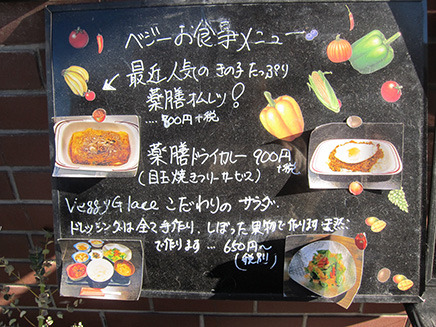 ベジーお食事メニュー
最近人気の きのこたっぷり
薬膳オムレツ!
... 800円+税
薬膳ドライカレー 900円
+税
(目玉焼きフリーサービス)
VeggyGlace こだわりの サラダ.
ドレッシングは全て手作り、しぼった果物で作ります
で作ります... 650円〜
(税別)